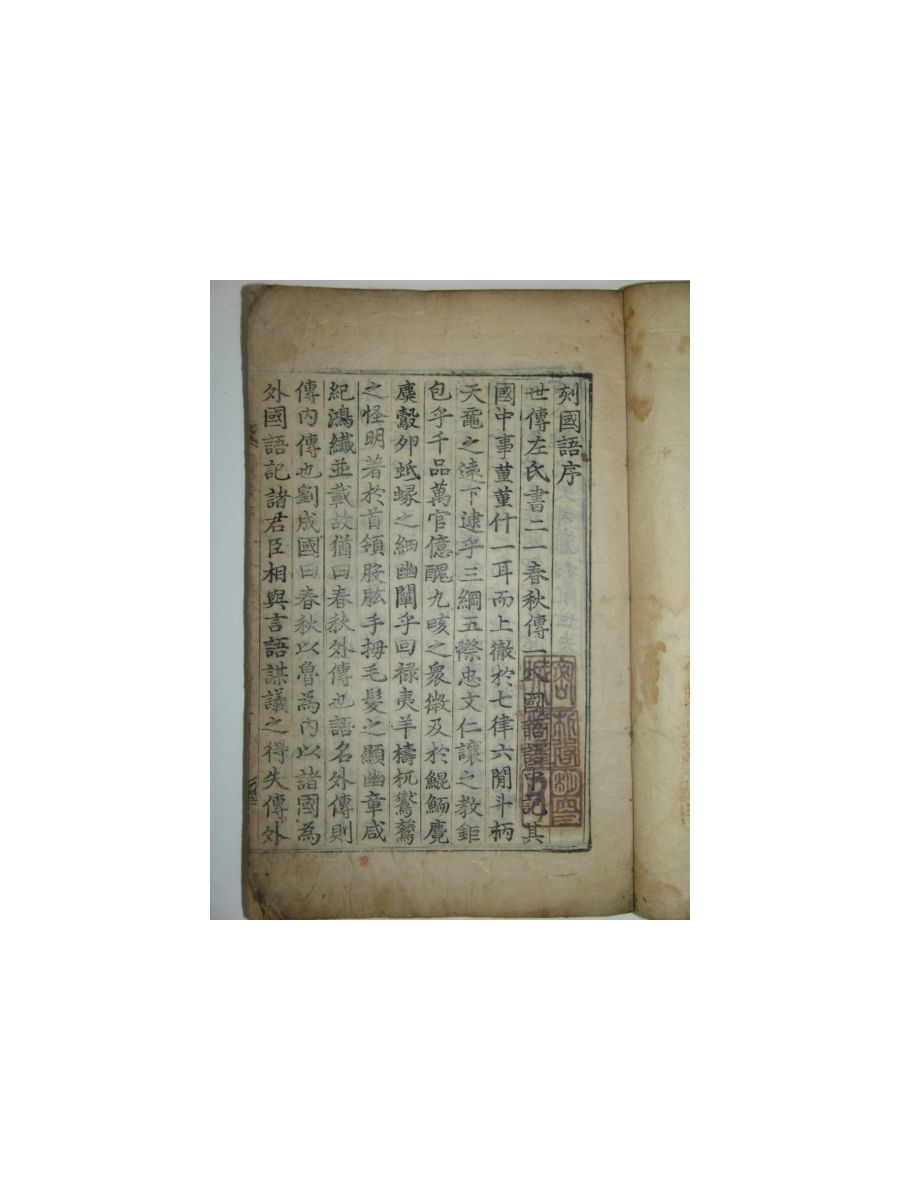 刻國語序
世傳左氏書二一春秋傳一國語語中記其
國中事菫菫什一耳而上徹於七律六閒斗柄
天黿之遠下逮乎三綱五際忠文仁讓之教鉅
包乎千品萬官億醜九畡之衆微及於鯤鮞麑
麌鷇卵蚳蝝之細幽闡乎回祿夷羊檮杌鸑鷟
之怪明著於首領股肱手拇毛髮之顯幽章咸
紀鴻纖並載故猶曰春秋外傳也語名外傳則
傳內傳也劉成國曰春秋以魯為內以諸國為
外國語記諸君臣相與言語謀議之得失傳外